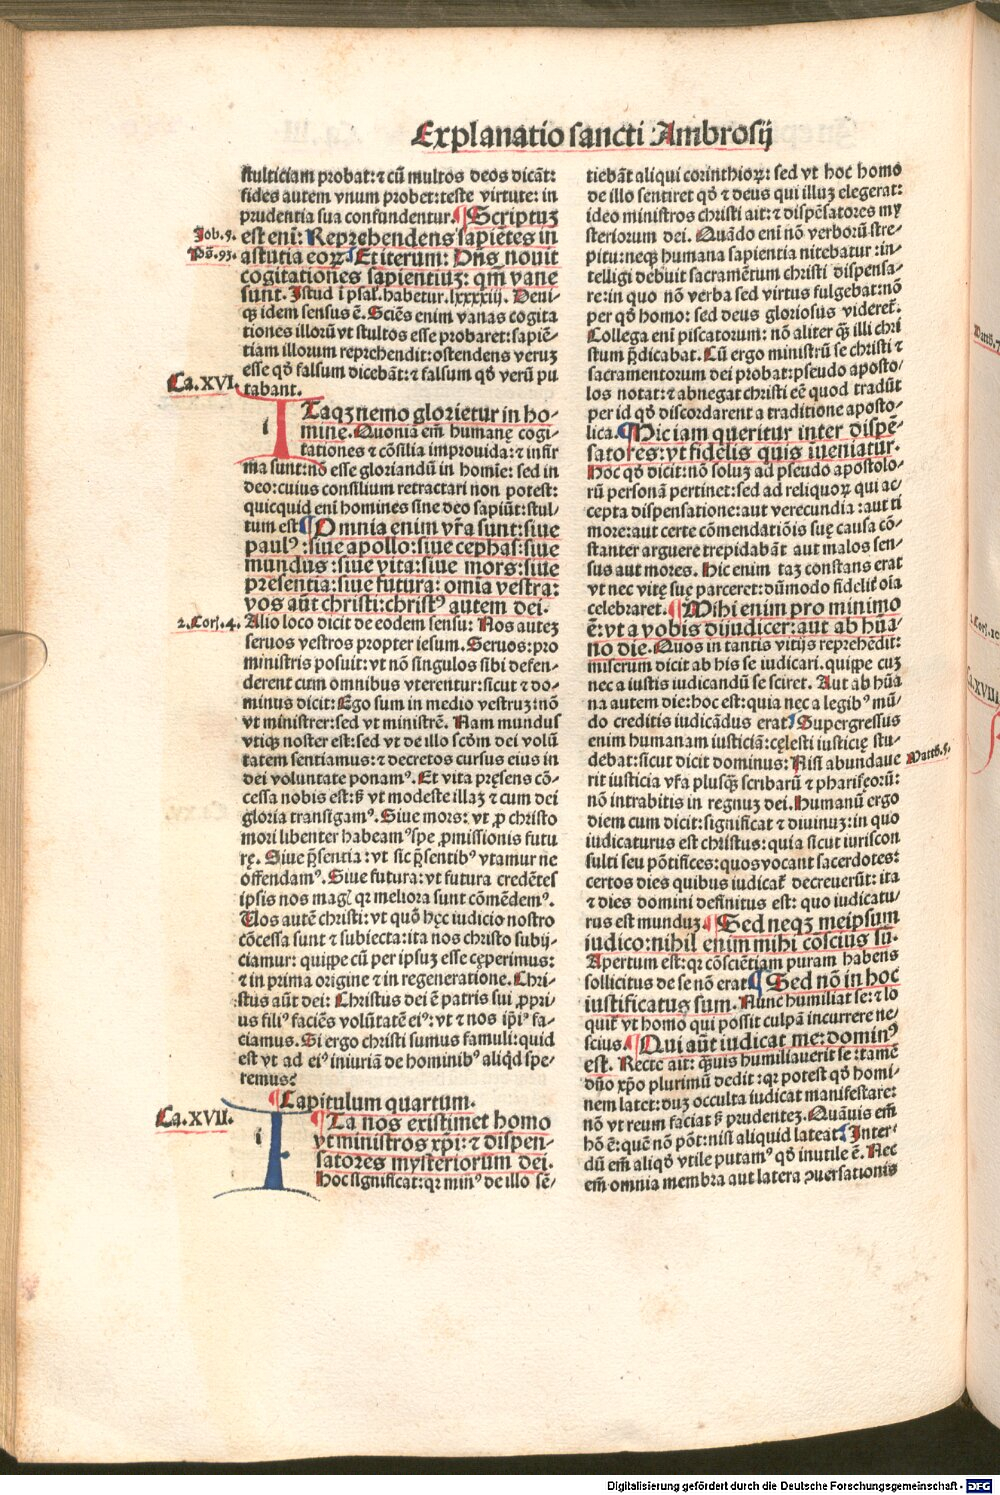 Explanatio sancti Ambrosij
stulticiam probat: ⁊ cū multos deos dicāt:
fides autem vnum probet: teste virtute: in
prudentia sua confundentur. Scriptuꝫ
Job. 5.
est enī: Reprehendens sapiētes in
Ps̄. 93.
astutia eoꝝ. Et iterum: Dn̄s nouit
cogitationes sapientiuꝫ: qm̄ vane
sunt. Istud ī psal. habetur. lxxxxiij. Deni-
qꝫ idem sensus ē. Sciēs enim vanas cogita
tiones illorū vt stultos esse probaret: sapiē-
tiam illorum reprehendit: ostendens veruꝫ
esse qḋ falsum dicebāt: ⁊ falsum qḋ verū pu
Ca. XVI.
tabant.
i
ITaqꝫ nemo glorietur in ho-
mine. Quoniā em̄ humanę cogi-
tationes ⁊ cōsilia improuida: ⁊ infir
ma sunt: nō esse gloriandū in homīe: sed in
deo: cuius consilium retractari non potest:
quicquid enī homines sine deo sapiūt: stul-
tum est. Omnia enim vr̄a sunt: siue
paulꝰ: siue apollo: siue cephas: siue
mundus: siue vita: siue mors: siue
presentia: siue futura: omīa vestra:
vos aūt christi: christꝰ autem dei.
2. Cor. 4.
Alio loco dicit de eodem sensu: Nos auteꝫ
seruos vestros propter iesum. Seruos: pro
ministris posuit: vt nō singulos sibi defen-
derent cum omnibus vterentur: sicut ⁊ do-
minus dicit: Ego sum in medio vestruꝫ: nō
vt ministrer: sed vt ministrē. Nam mundus
vtiqꝫ noster est: sed vt de illo scd̄m dei volū
tatem sentiamus: ⁊ decretos cursus eius in
dei voluntate ponamꝰ. Et vita pręsens cō-
cessa nobis est: ꝫ vt modeste illaꝫ ⁊ cum dei
gloria transigamꝰ. Siue mors: vt ꝓ christo
mori libenter habeamꝰ spe ꝓmissionis futu
rę. Siue p̄sentia: vt sic p̄sentibꝰ vtamur ne
offendamꝰ. Siue futura: vt futura credētes
ipsis nos magꝭ qꝛ meliora sunt cōmēdemꝰ.
Uos autē christi: vt quō hęc iudicio nostro
cōcessa sunt ⁊ subiecta: ita nos christo subij-
ciamur: quippe cū per ipsuꝫ esse cęperimus:
⁊ in prima origine ⁊ in regeneratione. Chri-
stus aūt dei: Christus dei ē patris sui ꝓpri-
us filiꝰ faciēs volūtatē eiꝰ: vt ⁊ nos ip̄iꝰ fa-
ciamus. Si ergo christi sumus famuli: quid
est vt ad eiꝰ iniuriā de hominibꝰ aliqd spe-
remus?
Capitulum quartum.
Ca. XVII.
i
ITa nos existimet homo
vt ministros xp̄i: ⁊ dispen-
satores mysteriorum dei.
Hoc significat: qꝛ minꝰ de illo sē-
tiebāt aliqui corinthioꝝ: sed vt hoc homo
de illo sentiret qḋ ⁊ deus qui illuꝫ elegerat:
ideo ministros christi ait: ⁊ dispēsatores my
steriorum dei. Quādo enī nō verborū stre-
pitu: neqꝫ humana sapientia nitebatur: in-
telligi debuit sacramētum christi dispensa-
re: in quo nō verba sed virtus fulgebat: nō
per qḋ homo: sed deus gloriosus videret̄.
Collega enī piscatorum: nō aliter qꝫ illi chri
stum p̄dicabat. Cū ergo ministrū se christi ⁊
sacramentorum dei probat: pseudo aposto-
los notat: ⁊ abnegat christi eē quod tradūt
per id qḋ discordarent a traditione aposto-
lica. Hic iam queritur inter dispē-
satores: vt fidelis quis inueniatur.
Hoc qḋ dicit: nō soluꝫ ad pseudo apostolo-
rū personā pertinet: sed ad reliquoꝝ qui ac-
cepta dispensatione: aut verecundia: aut ti
more: aut certe cōmendatiōis suę causa cō-
stanter arguere trepidabāt aut malos sen-
sus aut mores. Hic enim taꝫ constans erat
vt nec vitę suę parceret: dūmodo fidelit̄ oīa
celebraret. Mihi enim pro minimo
ē: vt a vobis dijudicer: aut ab hūa-
no die. Quos in tantis vitijs reprehēdit:
miserum dicit ab his se iudicari. quippe cuꝫ
nec a iustis iudicandū se sciret. Aut ab hūa
na autem die: hoc est: quia nec a legibꝰ mū-
do creditis iudicādus erat. Supergressus
enim humanam iusticiā: cęlesti iusticię stu-
debat: sicut dicit dominus: Nisi abundaue
Matth. 5.
rit iusticia vr̄a plusqꝫ scribarū ⁊ pharisęorū:
nō intrabitis in regnuꝫ dei. Humanū ergo
diem cum dicit: significat ⁊ diuinuꝫ: in quo
iudicaturus est christus: quia sicut iuriscon
sulti seu pōtifices: quos vocant sacerdotes:
certos dies quibus iudicaret̄ decreuerūt: ita
⁊ dies domini definitus est: quo iudicatu-
rus est munduꝫ. Sed neqꝫ meipsum
iudico: nihil enim mihi cōscius sū.
Apertum est: qꝛ cōsciētiam puram habens
sollicitus de se nō erat. Sed nō in hoc
iustificatus sum. Nunc humiliat se: ⁊ lo
quit̄ vt homo qui possit culpā incurrere ne-
scius. Qui aūt iudicat me: dominꝰ
est. Recte ait: qꝫuis humiliauerit se: tamē
dn̄o xp̄o plurimū dedit: qꝛ potest qḋ homi-
nem latet: duꝫ occulta iudicat manifestare:
nō vt reum faciat ꝫ prudenteꝫ. Quāuis em̄
hō ē: quē nō pōt: nisi aliquid lateat. Inter-
dū em̄ aliqḋ vtile putamꝰ qḋ inutile ē. Nec
em̄ omnia membra aut latera ꝯuersationis
Digitalisierung gefördert durch die Deutsche Forschungsgemeinschaft - DFG